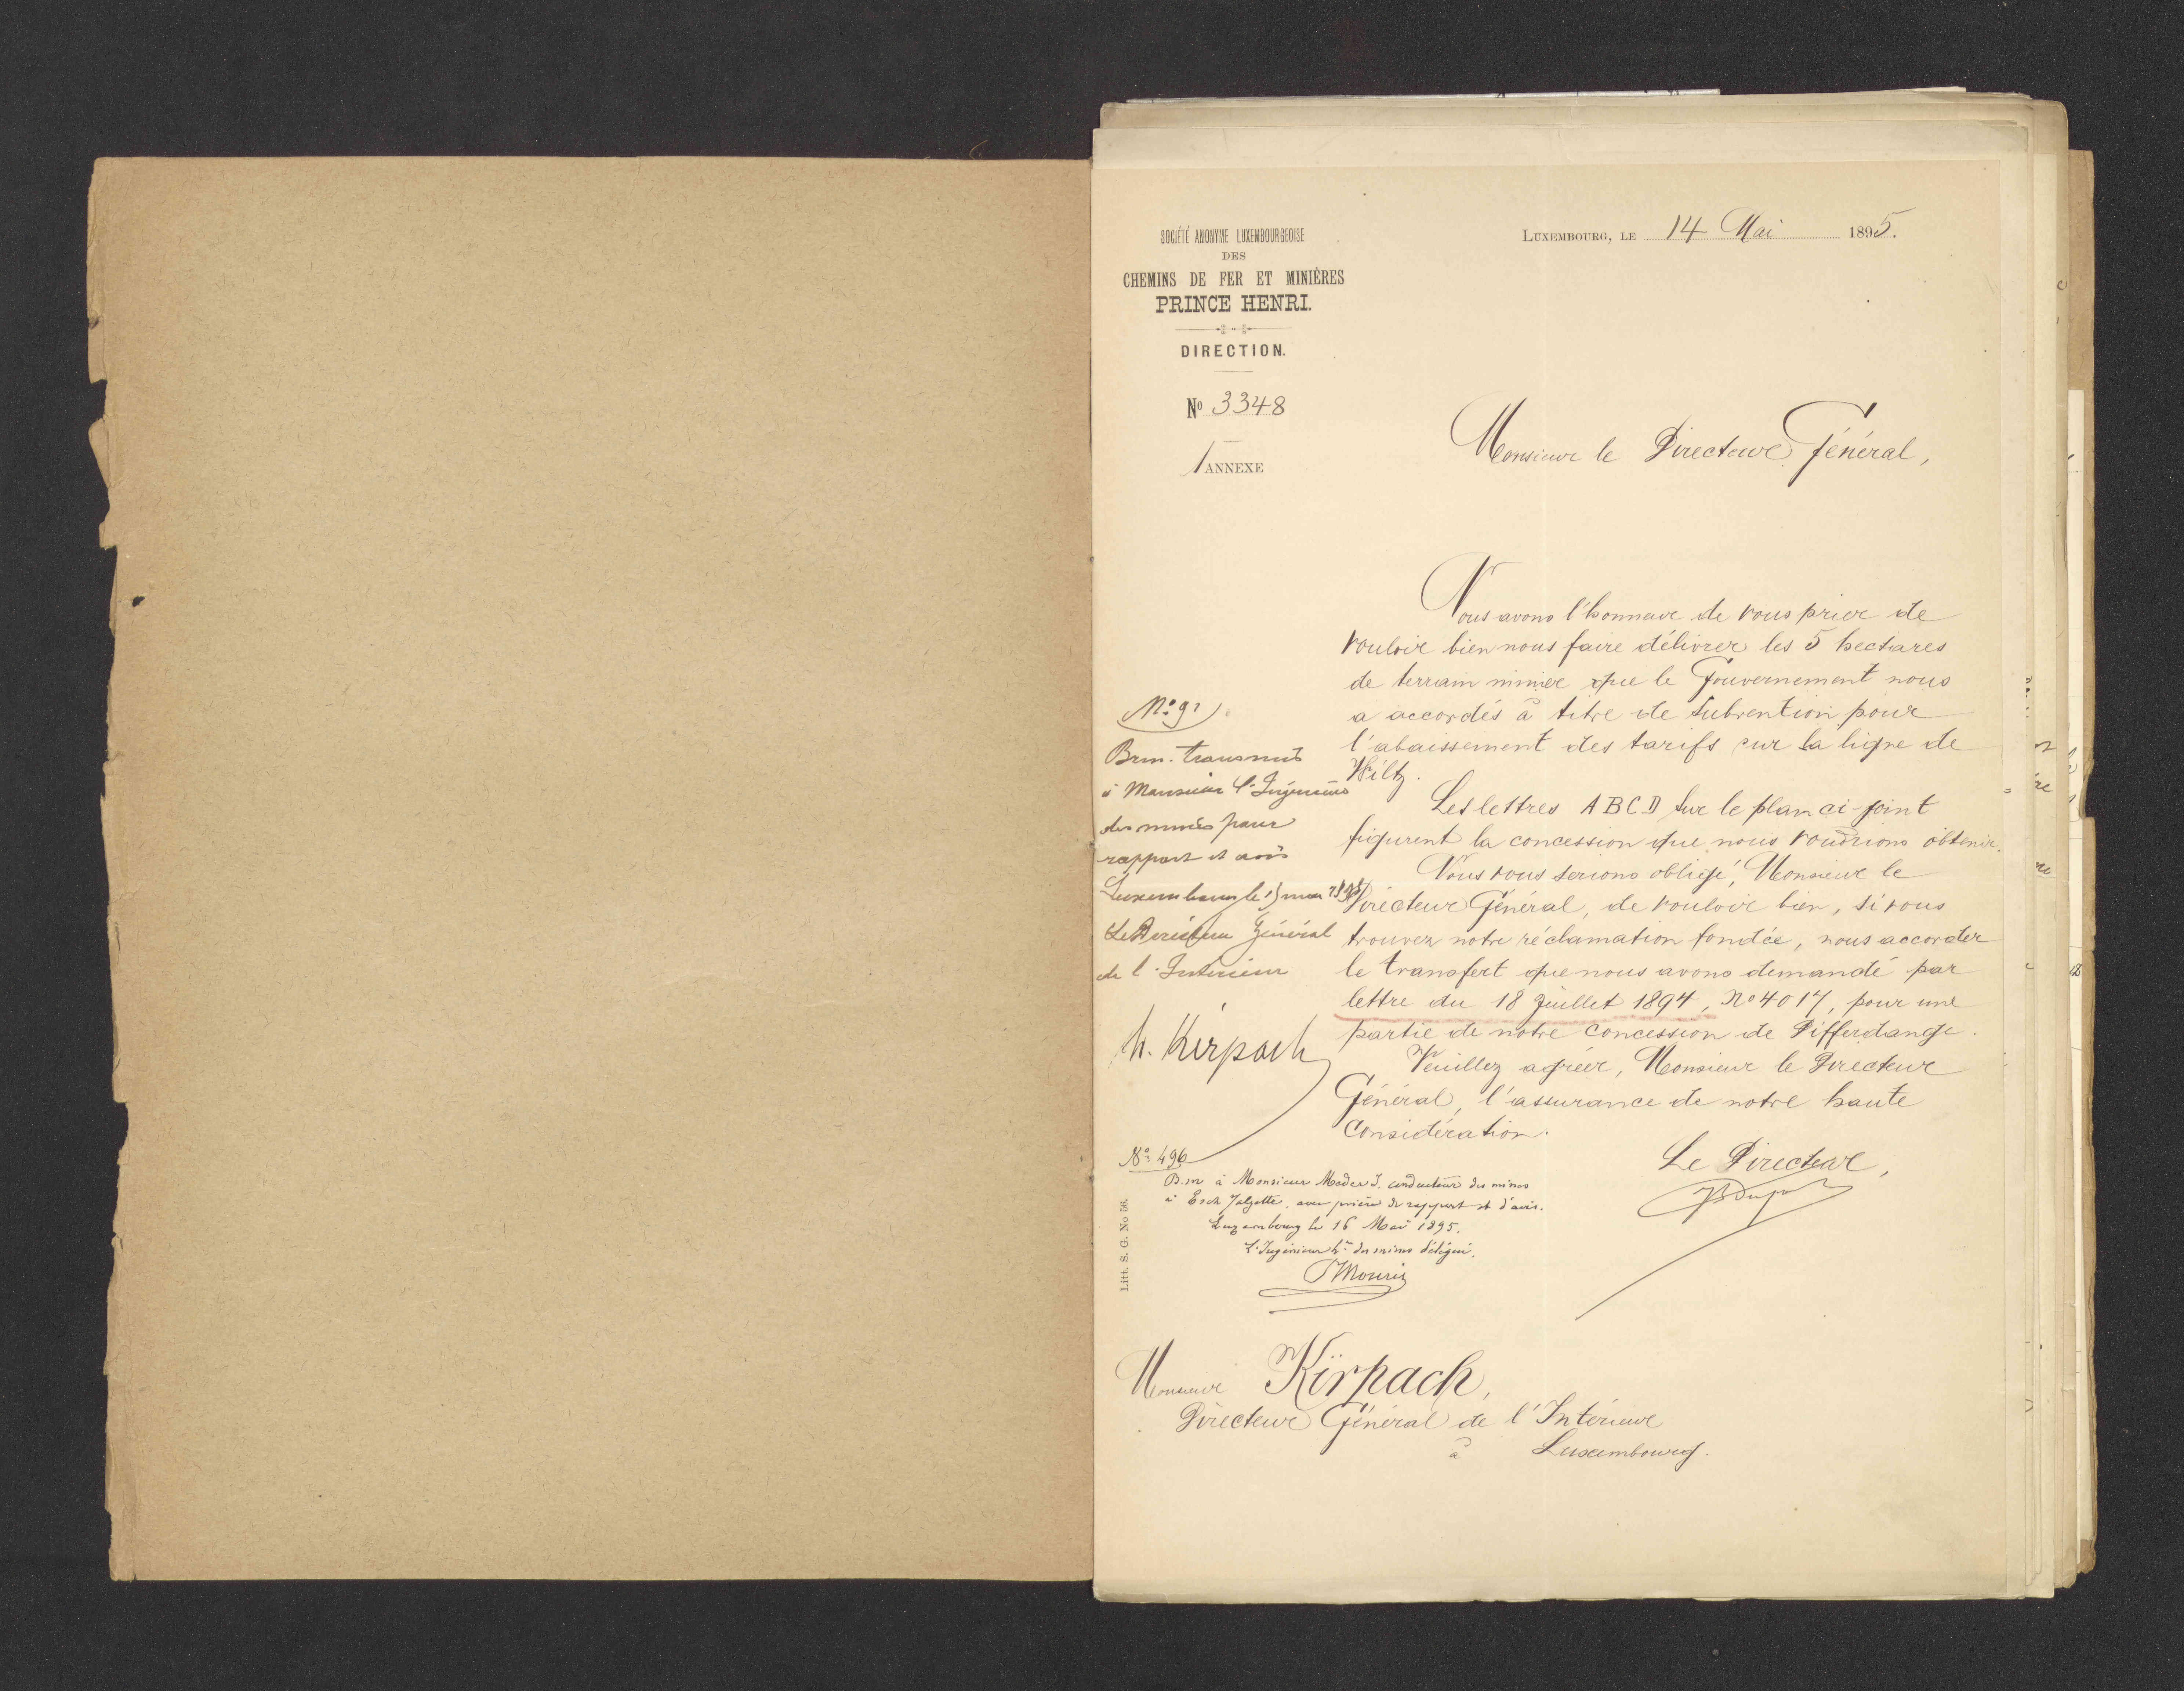 SOCIÉTÉ ANONYME LUXEMBOURGEOISE
DES
CHEMINS DE FER ET MINIÈRES
PRINCE HENRI.
DIRECTION.
No 3348
1 ANNEXE
LUXEMBOURG, LE 14 Mai 1895.
Monsieur le Directeur Général,
Nous avons l'honneur de vous prier de
vouloir bien nous faire délivrer les 5 hectares
de terrain minier que le Gouvernement nous
a accordés à titre de subvention pour
l'abaissement des tarifs sur la ligne de
Wiltz.
Les lettres A B C D sur le plan ci-joint
figurent la concession que nous voudrions obtenir.
Nous vous serions obligé, Monsieur le
Directeur Général, de vouloir bien, si vous
trouvez notre réclamation fondée, nous accorder
le transfert que nous avons demandé par
lettre du 18 Juillet 1894, No 4017, pour une
partie de notre concession de Differdange.
Veuillez agréer, Monsieur le Directeur
Général, l'assurance de notre haute
considération.
Le Directeur,
No. 91
Brm. transmis
à Monsieur l'Ingénieur
des mines pour
rapport et avis
Luxembourg le 15 mai 1895
Le Directeur Général
de l'Intérieur
h. Kirpach
No. 496
B.m à Monsieur Meder J. conducteur des mines
à Esch s/alzette, avec prière de rapport et d'avis.
Luxembourg le 16 Mai 1895.
L'Ingénieur des mines délégué.
Monsieur Kirpach,
Directeur Général de l'Intérieur
à Luxembourg.
Litt. S. G. No 56.